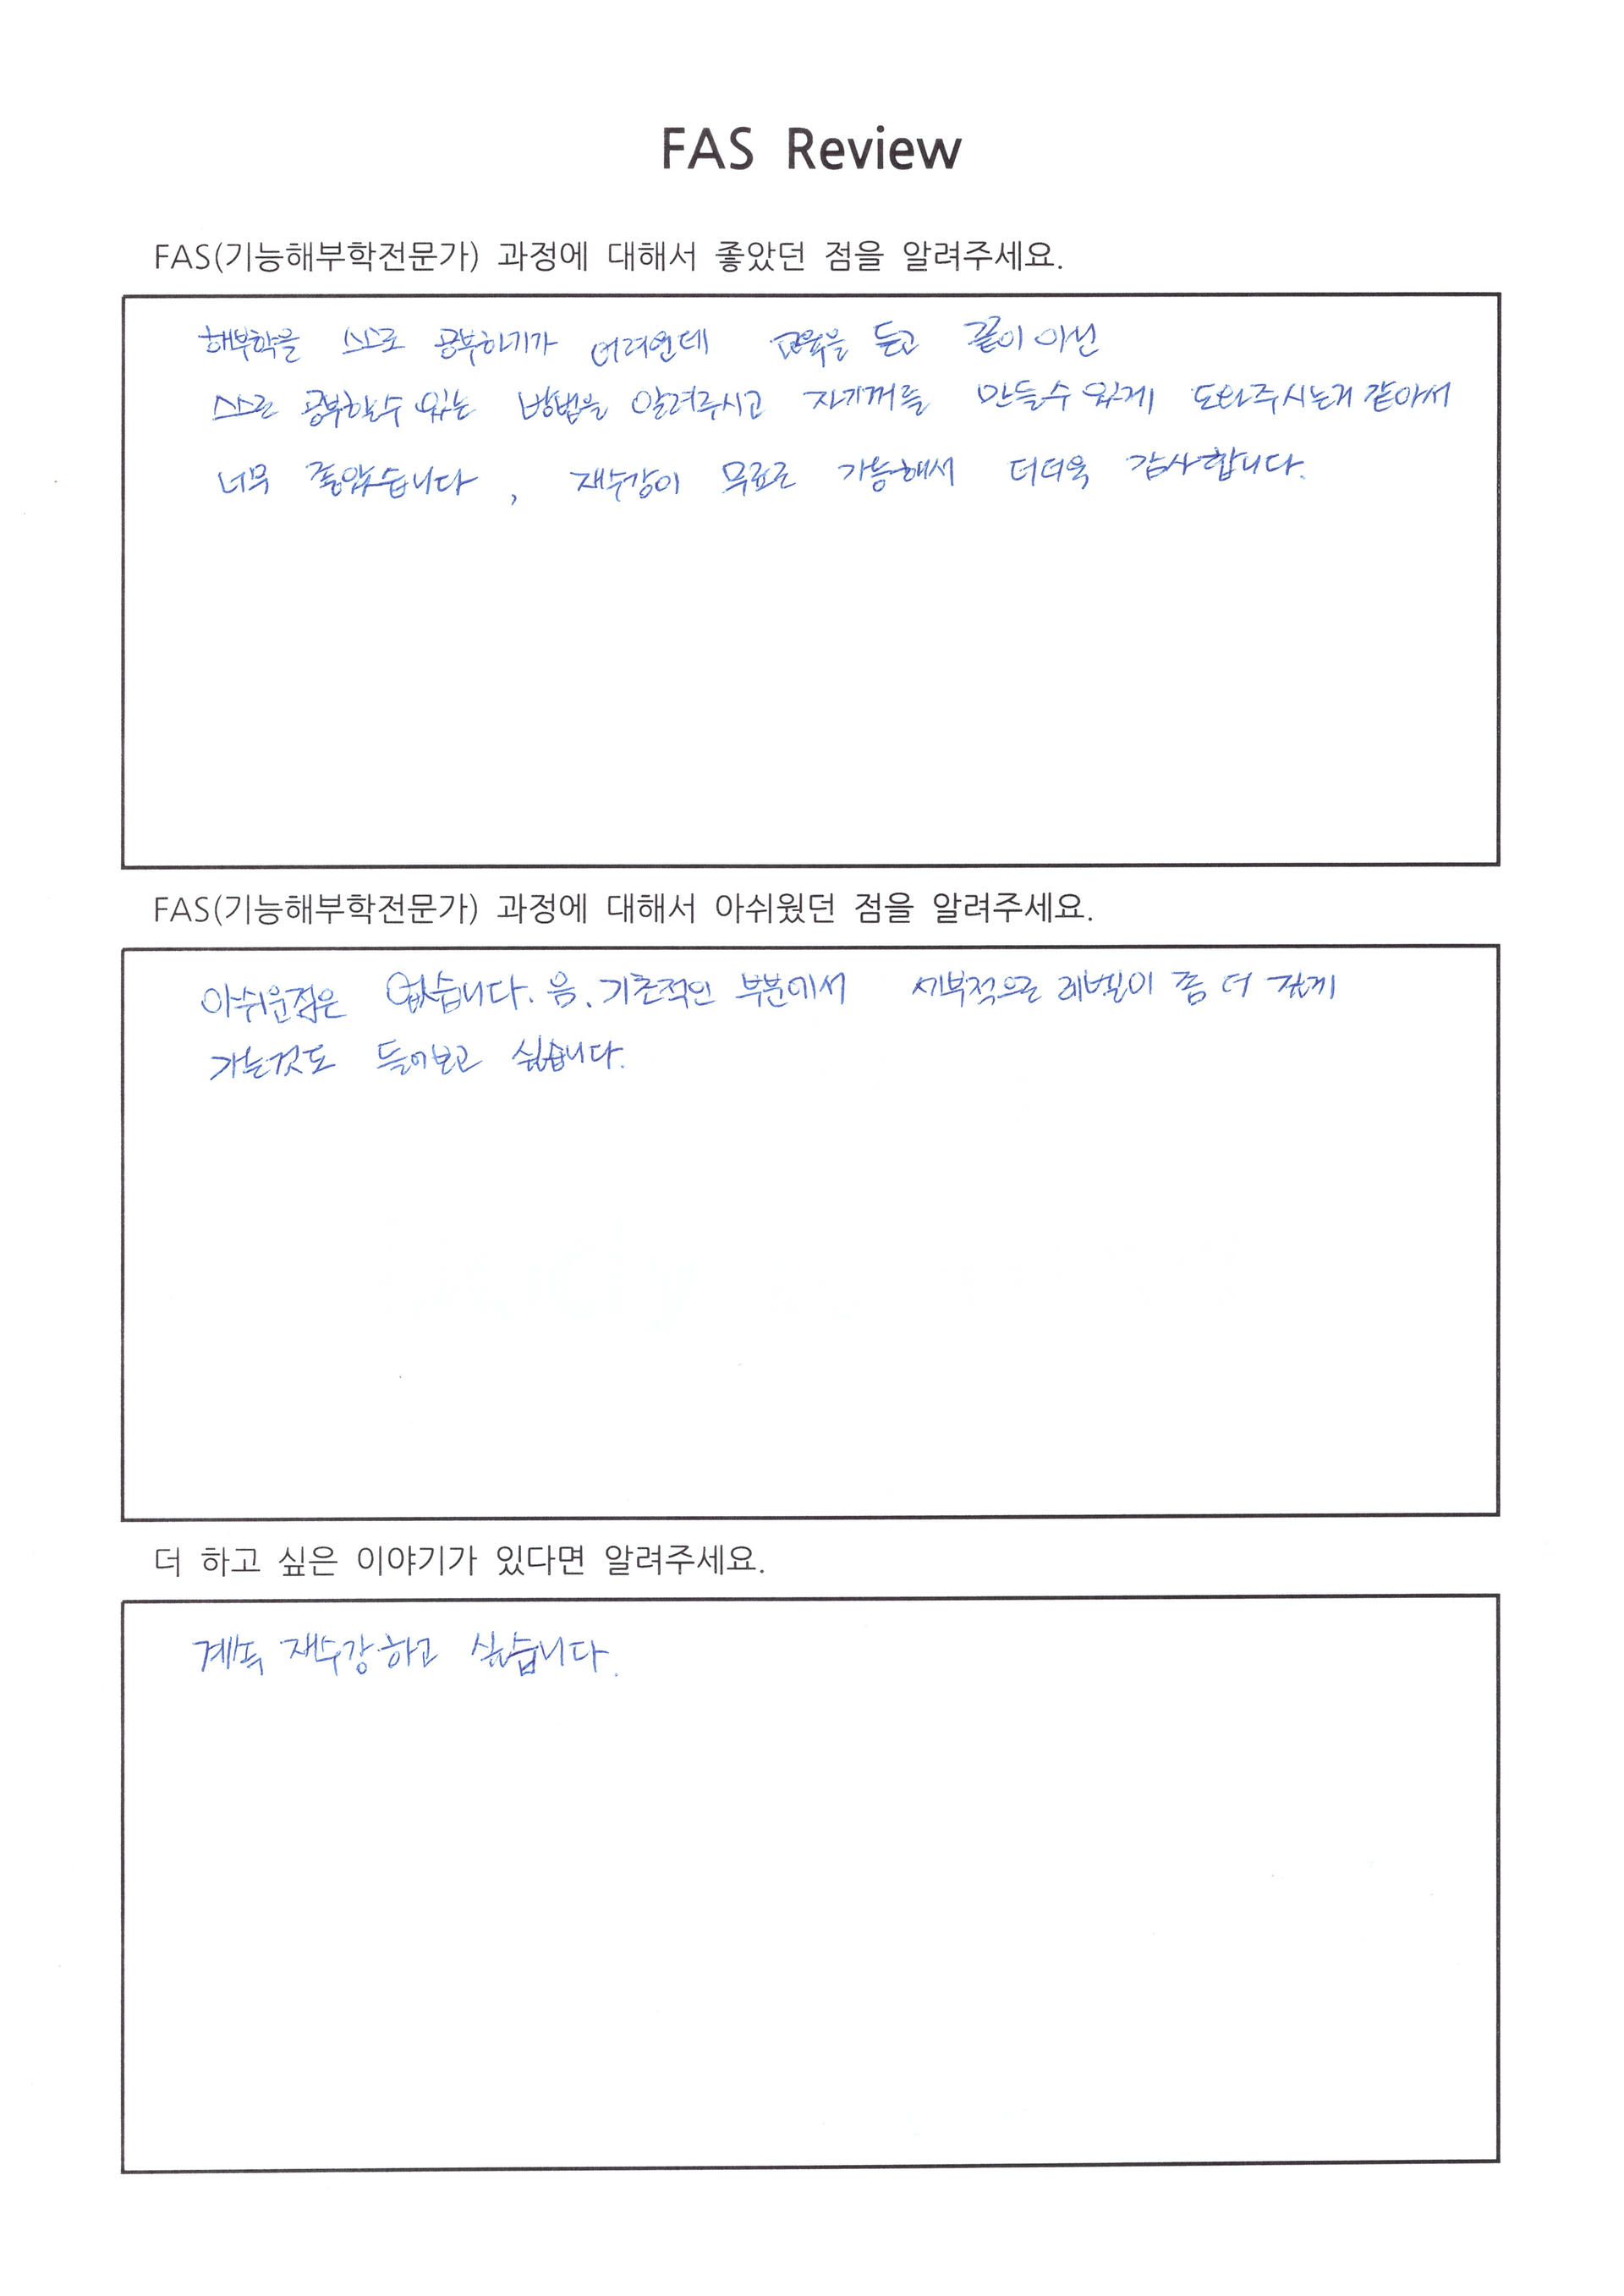 FAS Review
FAS(기능해부학전문가) 과정에 대해서 좋았던 점을 알려주세요.
해부학을 스스로 공부하기가 어려운데 교육을 듣고 끝이 아닌
스스로 공부할수 있는 방법을 알려주시고 자기꺼를 만들수 있게 도와주시는거 같아서
너무 좋았습니다, 재수강이 무료로 가능해서 더더욱 감사합니다.
FAS(기능해부학전문가) 과정에 대해서 아쉬웠던 점을 알려주세요.
아쉬운점은 없습니다. 음. 기초적인 부분에서 세부적으로 레벨이 좀 더 깊게
가는것도 들어보고 싶습니다.
더 하고 싶은 이야기가 있다면 알려주세요.
계속 재수강하고 싶습니다.